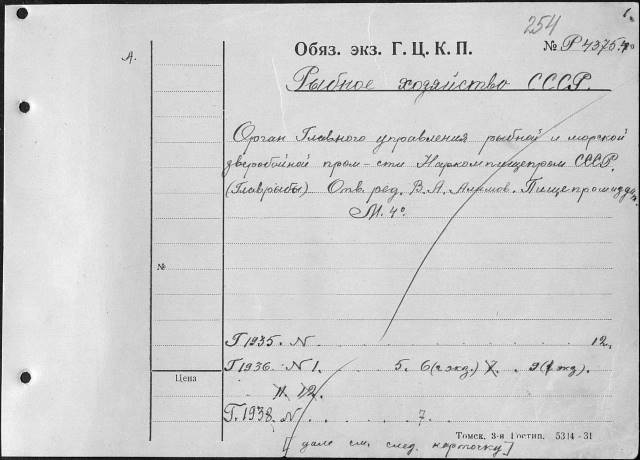 1.
254
А.
Обяз. экз. Г. Ц. К. П.
№ Р 4375 40
Рыбное хозяйство СССР.
Орган Главного управления рыбной и морской
зверобойной пром-сти Наркомпищепром СССР.
(Главрыбы) Отв. ред. В. А. Пищепромиздат
М. 4°.
№
Г 1935. N 12.
Г 1936. N 1. 5. 6 (2 экз.) 7. 9 (2 экз).
Цена
11. 12.
Г. 1938. N 7.
Томск. 3-я Гостип. 5314-31
[дале см. след. карточку]